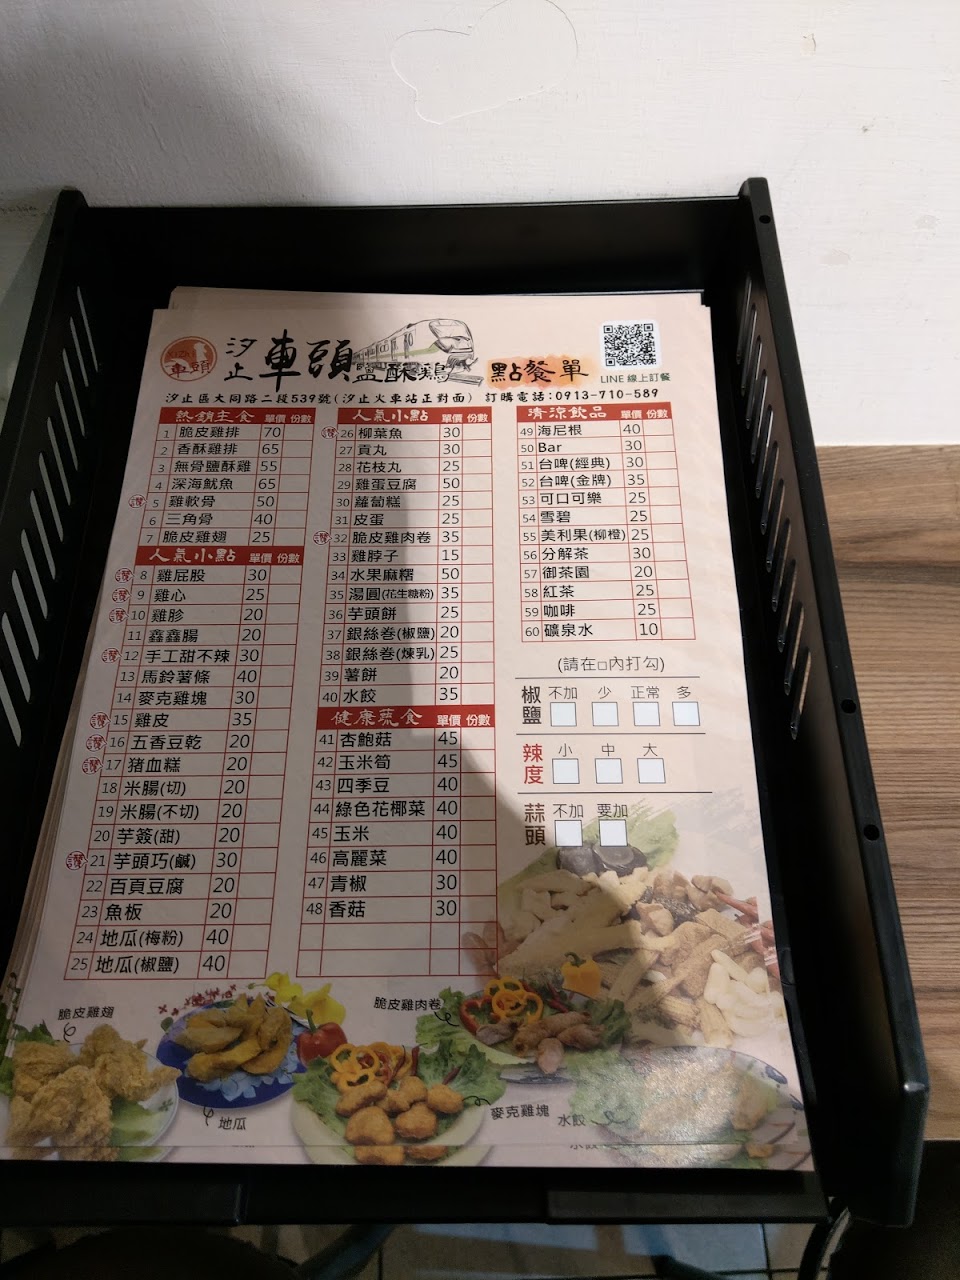 車頭
汐止車頭鹽酥鷄
點餐單
LINE 線上訂餐
汐止區大同路二段539號(汐止火車站正對面) 訂購電話:0913-710-589
熱銷主食 單價 份數
1 脆皮雞排 70
2 香酥雞排 65
3 無骨鹽酥雞 55
4 深海魷魚 65
讚 5 雞軟骨 50
6 三角骨 40
7 脆皮雞翅 25
人氣小點 單價 份數
讚 8 雞屁股 30
讚 9 雞心 25
讚 10 雞胗 20
11 鑫鑫腸 20
讚 12 手工甜不辣 30
13 馬鈴薯條 40
14 麥克雞塊 30
讚 15 雞皮 35
讚 16 五香豆乾 20
讚 17 猪血糕 20
18 米腸(切) 20
19 米腸(不切) 20
20 芋簽(甜) 20
讚 21 芋頭巧(鹹) 30
22 百頁豆腐 20
23 魚板 20
24 地瓜(梅粉) 40
25 地瓜(椒鹽) 40
人氣小點 單價 份數
讚 26 柳葉魚 30
27 貢丸 30
28 花枝丸 25
29 雞蛋豆腐 50
30 蘿蔔糕 25
31 皮蛋 25
讚 32 脆皮雞肉卷 35
33 雞脖子 15
34 水果麻糬 50
35 湯圓(花生糖粉) 35
36 芋頭餅 25
37 銀絲卷(椒鹽) 20
38 銀絲卷(煉乳) 25
39 薯餅 20
40 水餃 35
健康蔬食 單價 份數
41 杏鮑菇 45
42 玉米筍 45
43 四季豆 40
44 綠色花椰菜 40
45 玉米 40
46 高麗菜 40
47 青椒 30
48 香菇 30
清涼飲品 單價 份數
49 海尼根 40
50 Bar 30
51 台啤(經典) 30
52 台啤(金牌) 35
53 可口可樂 25
54 雪碧 25
55 美利果(柳橙) 25
56 分解茶 30
57 御茶園 20
58 紅茶 25
59 咖啡 25
60 礦泉水 10
(請在□內打勾)
椒鹽 不加 少 正常 多
辣度 小 中 大
蒜頭 不加 要加
脆皮雞翅
地瓜
脆皮雞肉卷
麥克雞塊
水餃